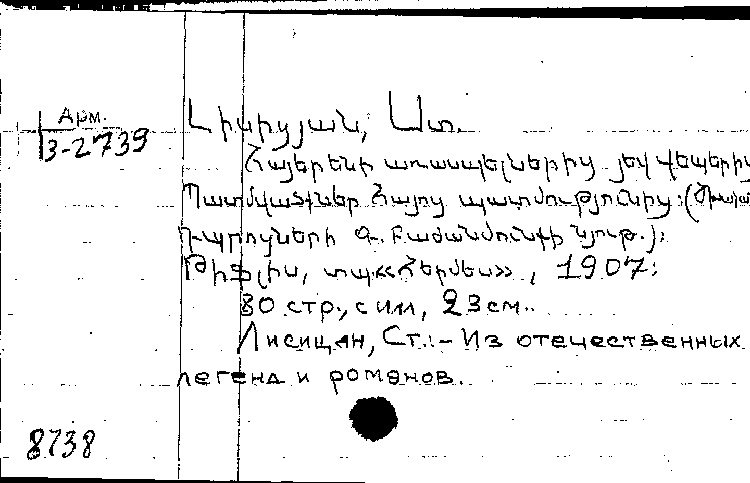 Арм.
З-2739
Լիսիցյան, Ստ.
Հայերենի առասպելներից յեվ վեպերից
Պատմվածքներ հայոց պատմությունից: (Ծխական
դպրոցների Գ. բաժանմունքի նյութ.):
Թիֆլիս, տպ. «Հերմես», 1907:
80 стр., с илл, 23 см.
Лисицян, Ст.:- Из отечественных
легенд и романов.
8738